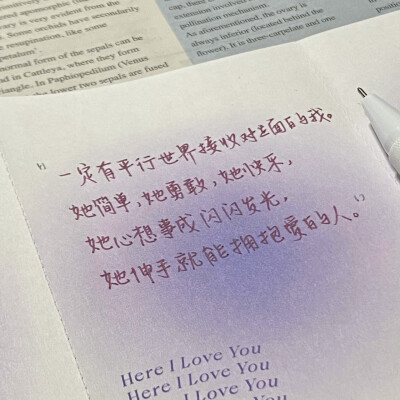 ry is very evident from
d. Some orchids have secondarily
resupination, like some
normal form of the sepals can be
in Cattleya, where they form
In Paphiopedilum (Venus
lower two sepals are fused
extension involved
pollination mechanism.
As aforementioned, the ovary is
always inferior (located behind the
flower). It is three-carpelate and one
“一定有平行世界接收对立面的我。
她简单,她勇敢,她快乐,
她心想事成闪闪发光,
她伸手就能拥抱爱的人。”
Here I Love You
Here I Love You
I Love You
You